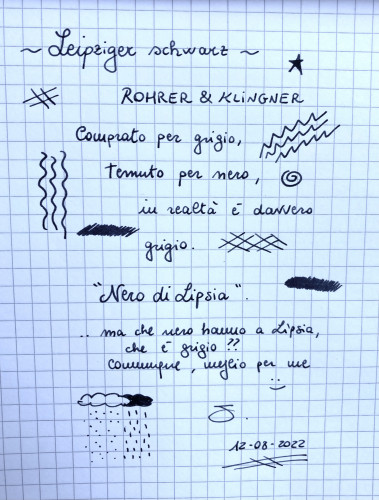 ~ Leipziger schwarz ~
ROHRER & KLINGNER
Comprato per grigio,
Temuto per nero,
in realtà è davvero
grigio.
"Nero di Lipsia".
.. ma che nero hanno a Lipsia,
che è grigio ??
Comunque, meglio per me
:)
12-08-2022